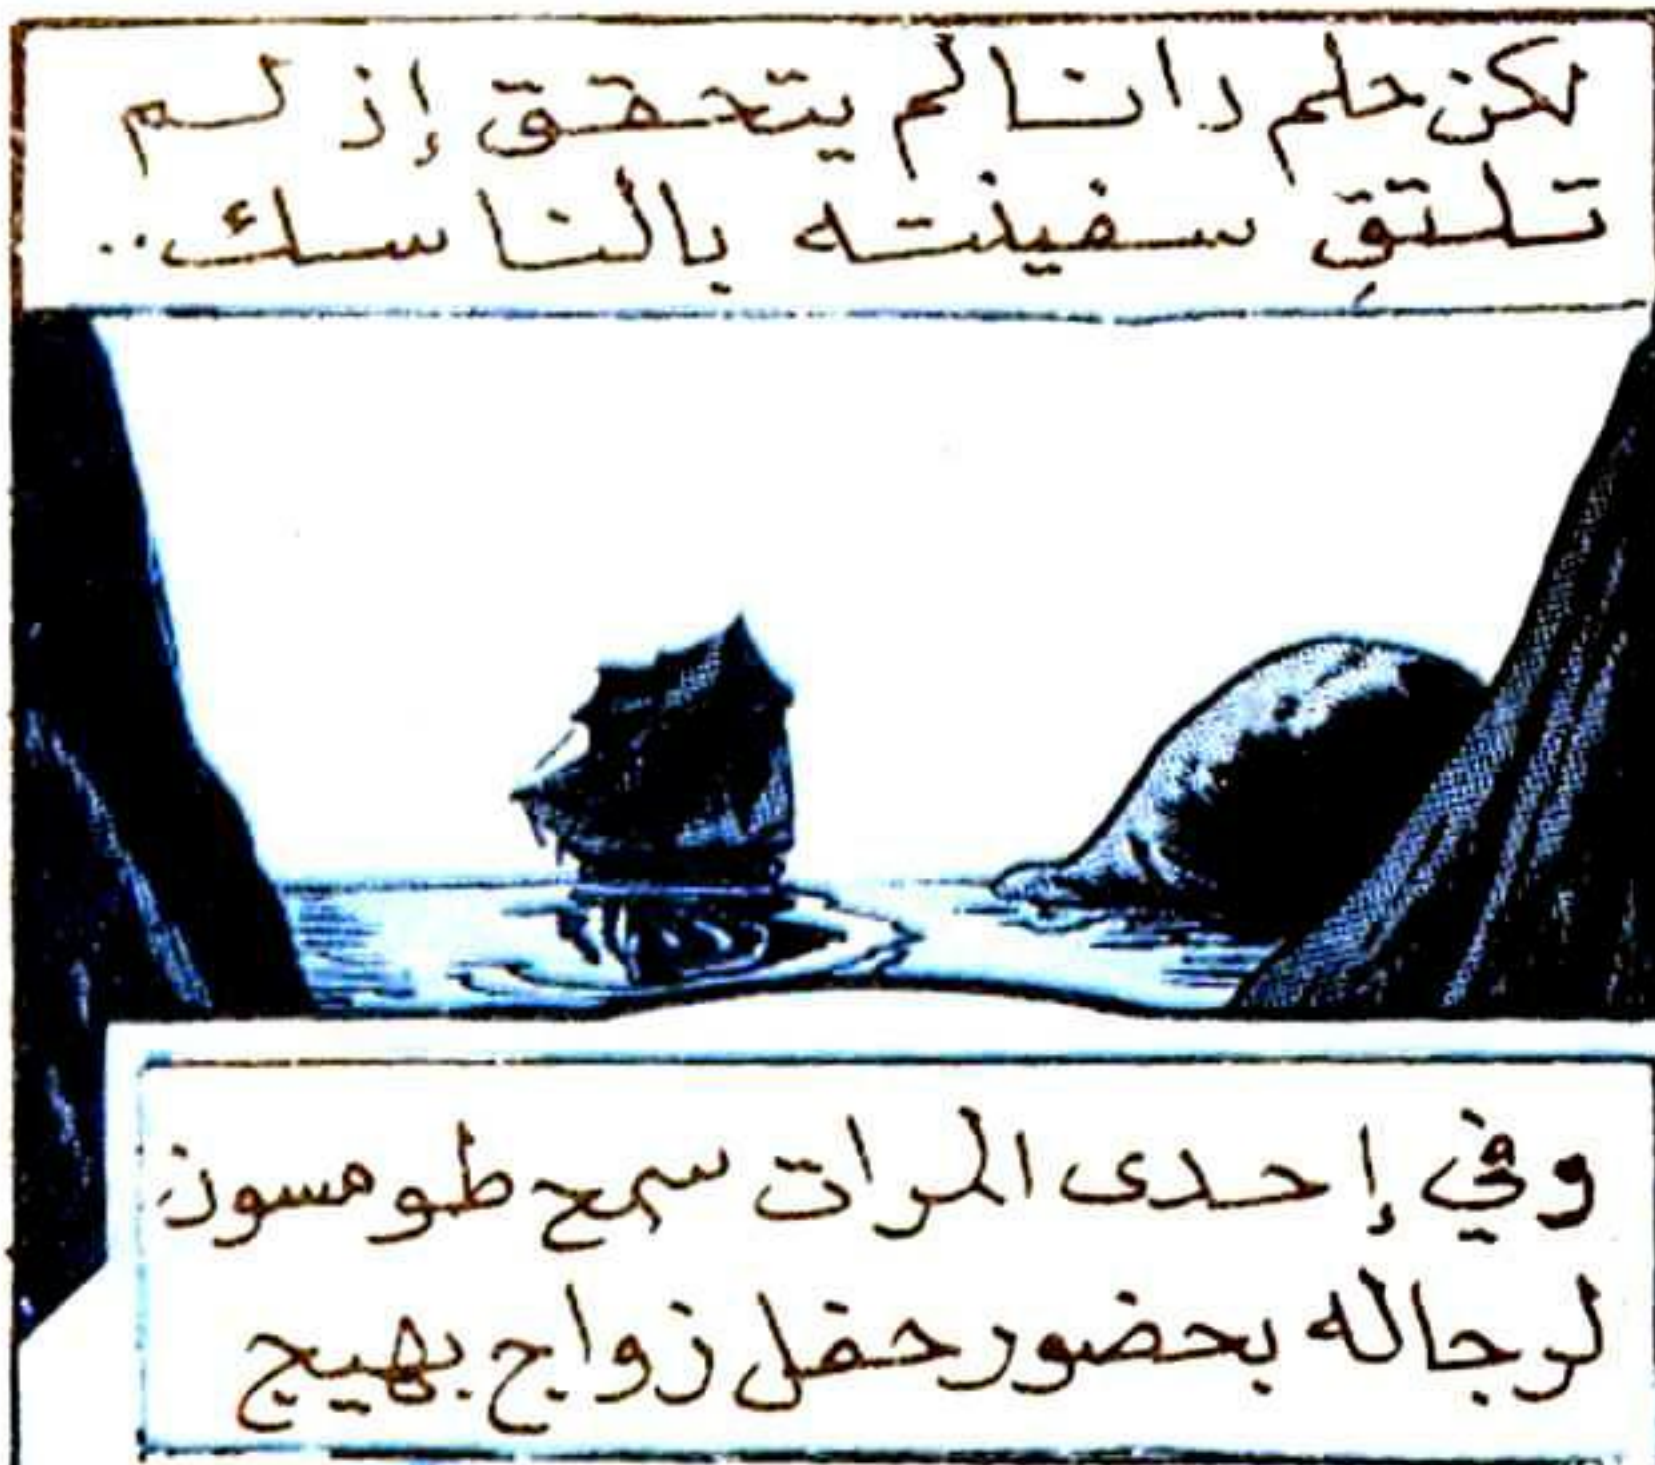 لكن حلم دانا لم يتحقق إذ لم
تلتقِ سفينته بالناسك..
وفي إحدى المرات سمح طومسون
لرجاله بحضور حفل زواج بهيج